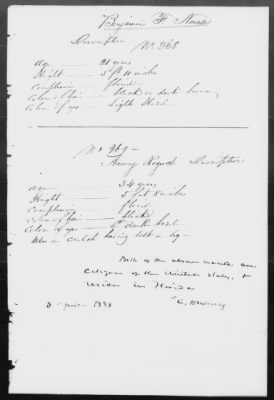 Benjamin F
Description
No. 268
Age 21 years
Height 5 ft 10 inches
Complexion florid
Color of hair black or dark brown
Color of eyes Light
No 269 —
Henry Description
Age 34 years
Height 5 feet 8 inches
Complexion florid
Color of hair black
Color of eyes dark
a crutch having lost a leg —
Both of the above named are
Citizens of the United States, &
reside in Florida
3 1838
C. Downing